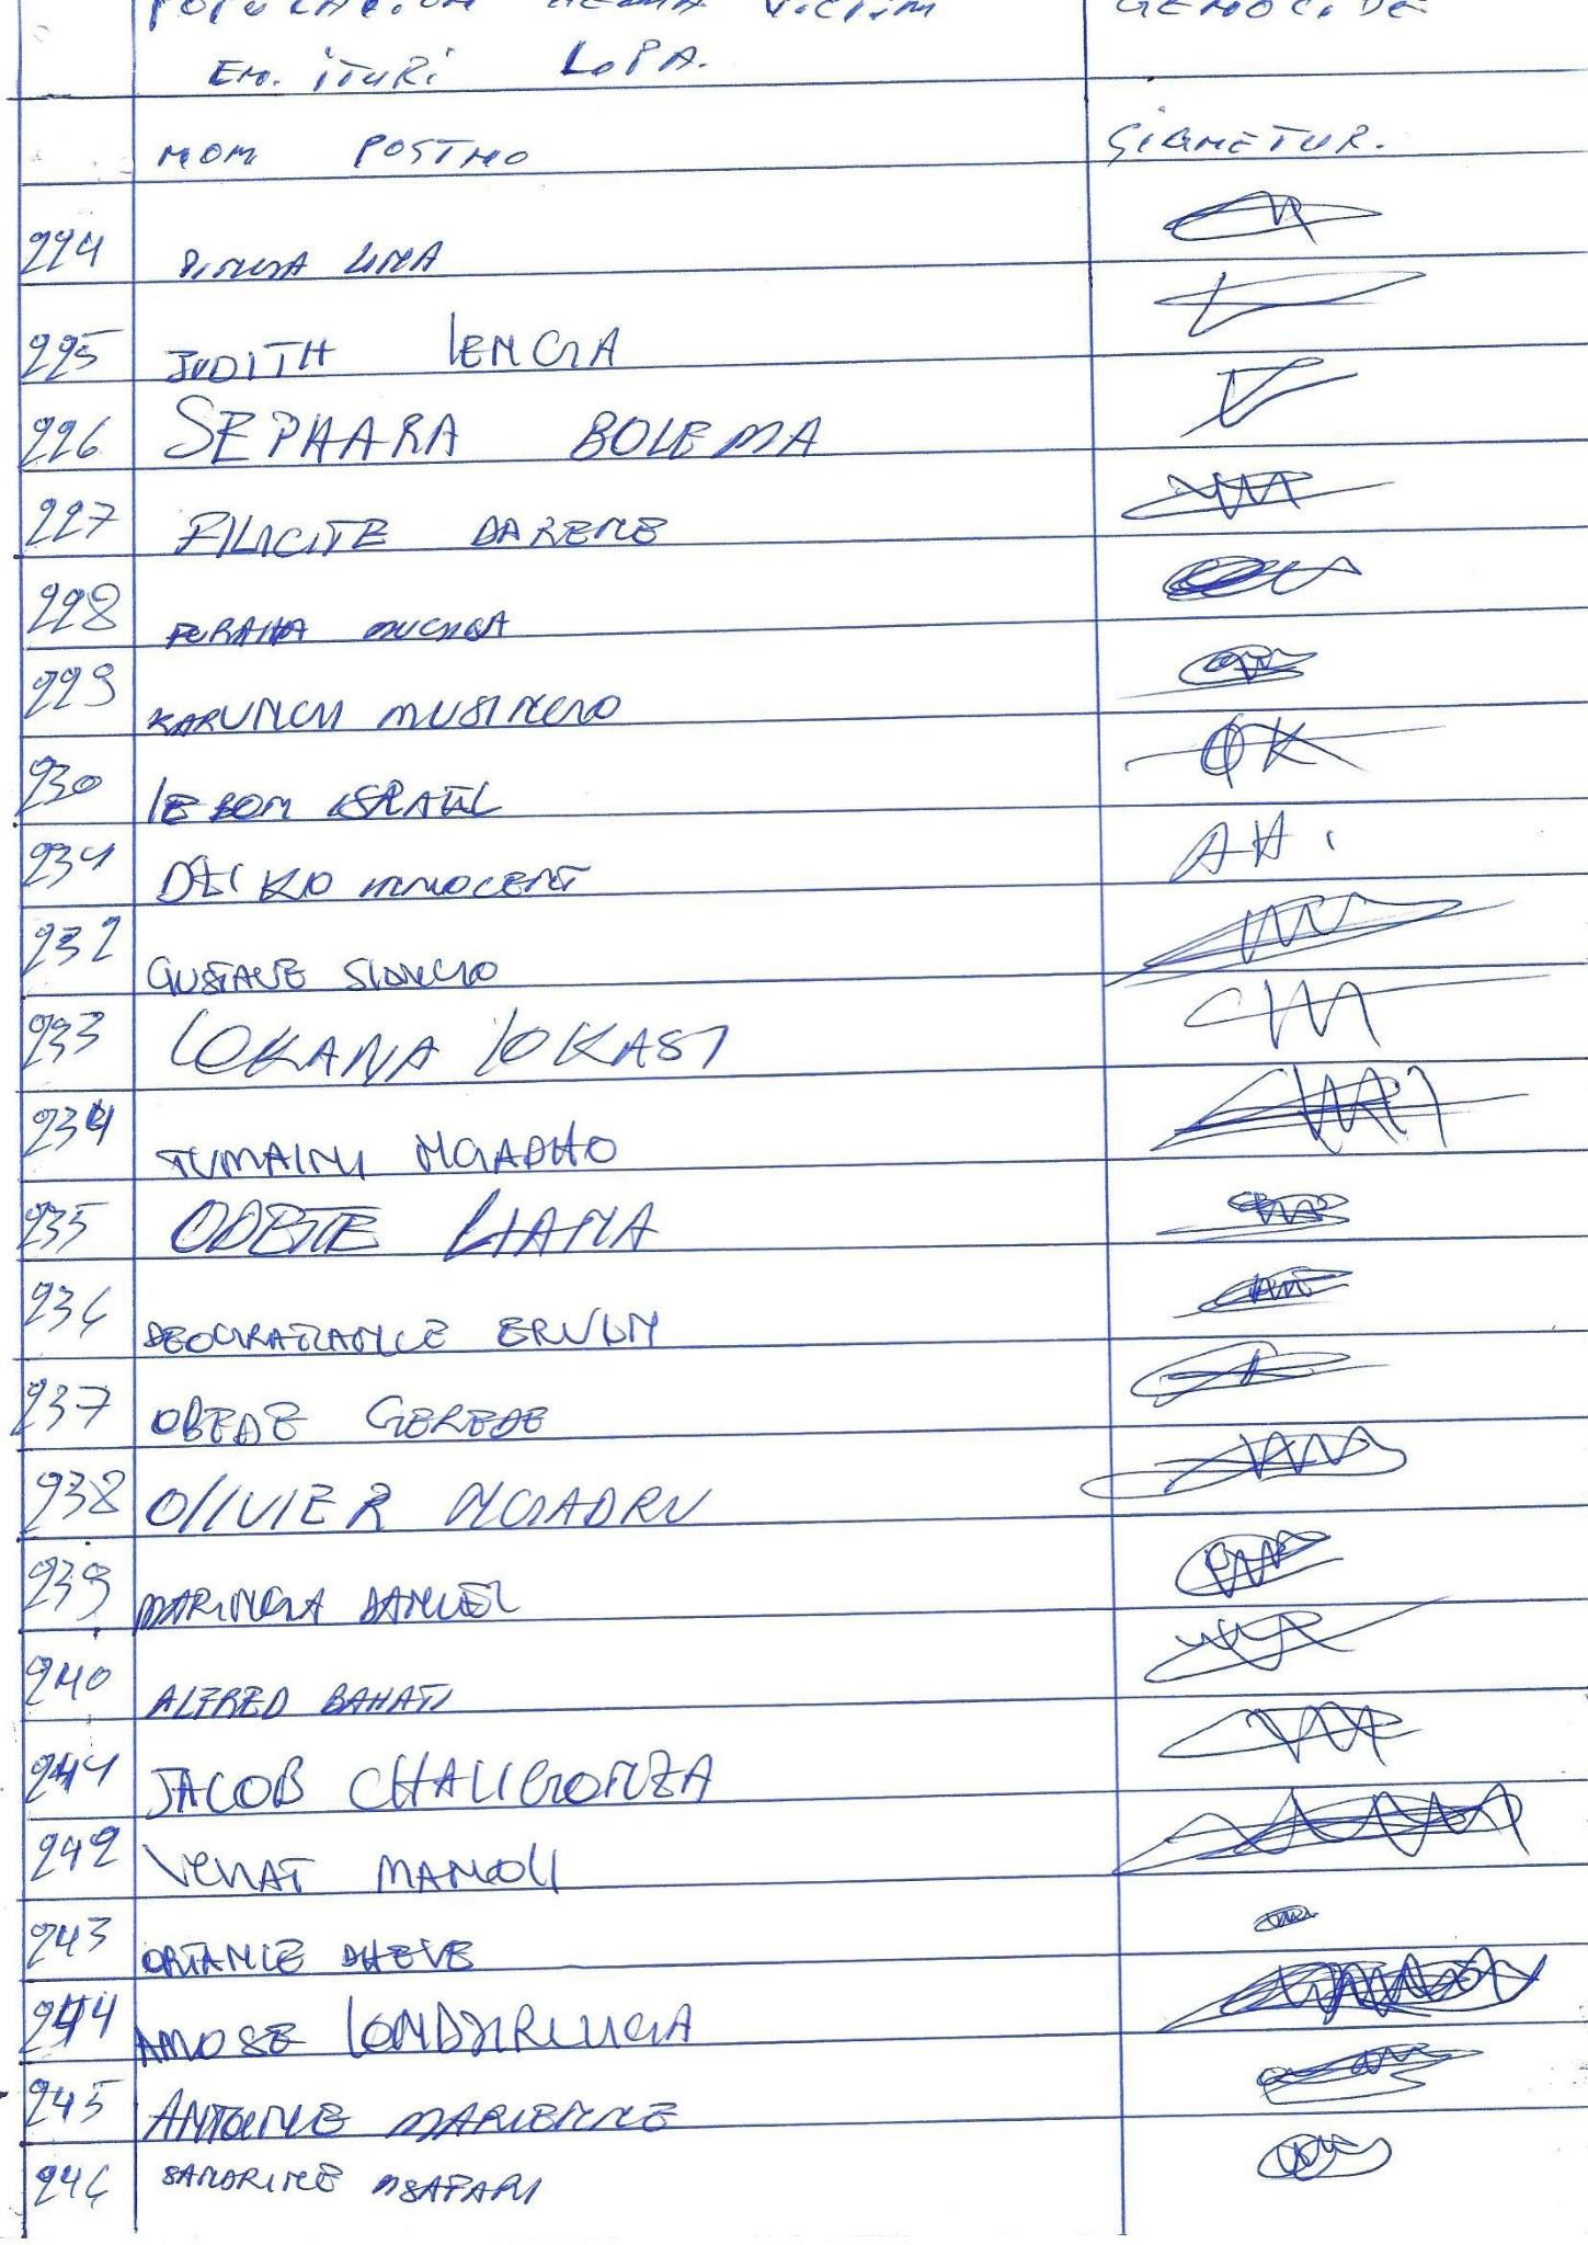 POPULATION HEMA VICTIM GENOCIDE
EN. ITURI LOPA.
NOM POSTNO SIGNETUR.
224 LINA
225 JUDITH LENGA
226 SEPHARA BOLEMA
227 FILICITE DARENE
228 FURAHA
229 KARUNGI MUSINGO
230 LEBON ISRAEL
231 DZIKO INNOCENT AH.
232 GUSTAVE
233 LOKANA LOKASI
234 TUMAINI NGADHO
235 ODETTE LIANA
236 DEOGRATIANCE ERVUN
237 OBEDE GEREDE
238 OLIVIER NGADRU
239 MARINGA DANIEL
240 ALFRED BAHATI
241 JACOB CHALIGONZA
242 VENAT MANGOLI
243 ORTANCE DHEVE
244 AMOSE
245 ANTOINE MARIENNE
246 SANDRINE MSAFARI